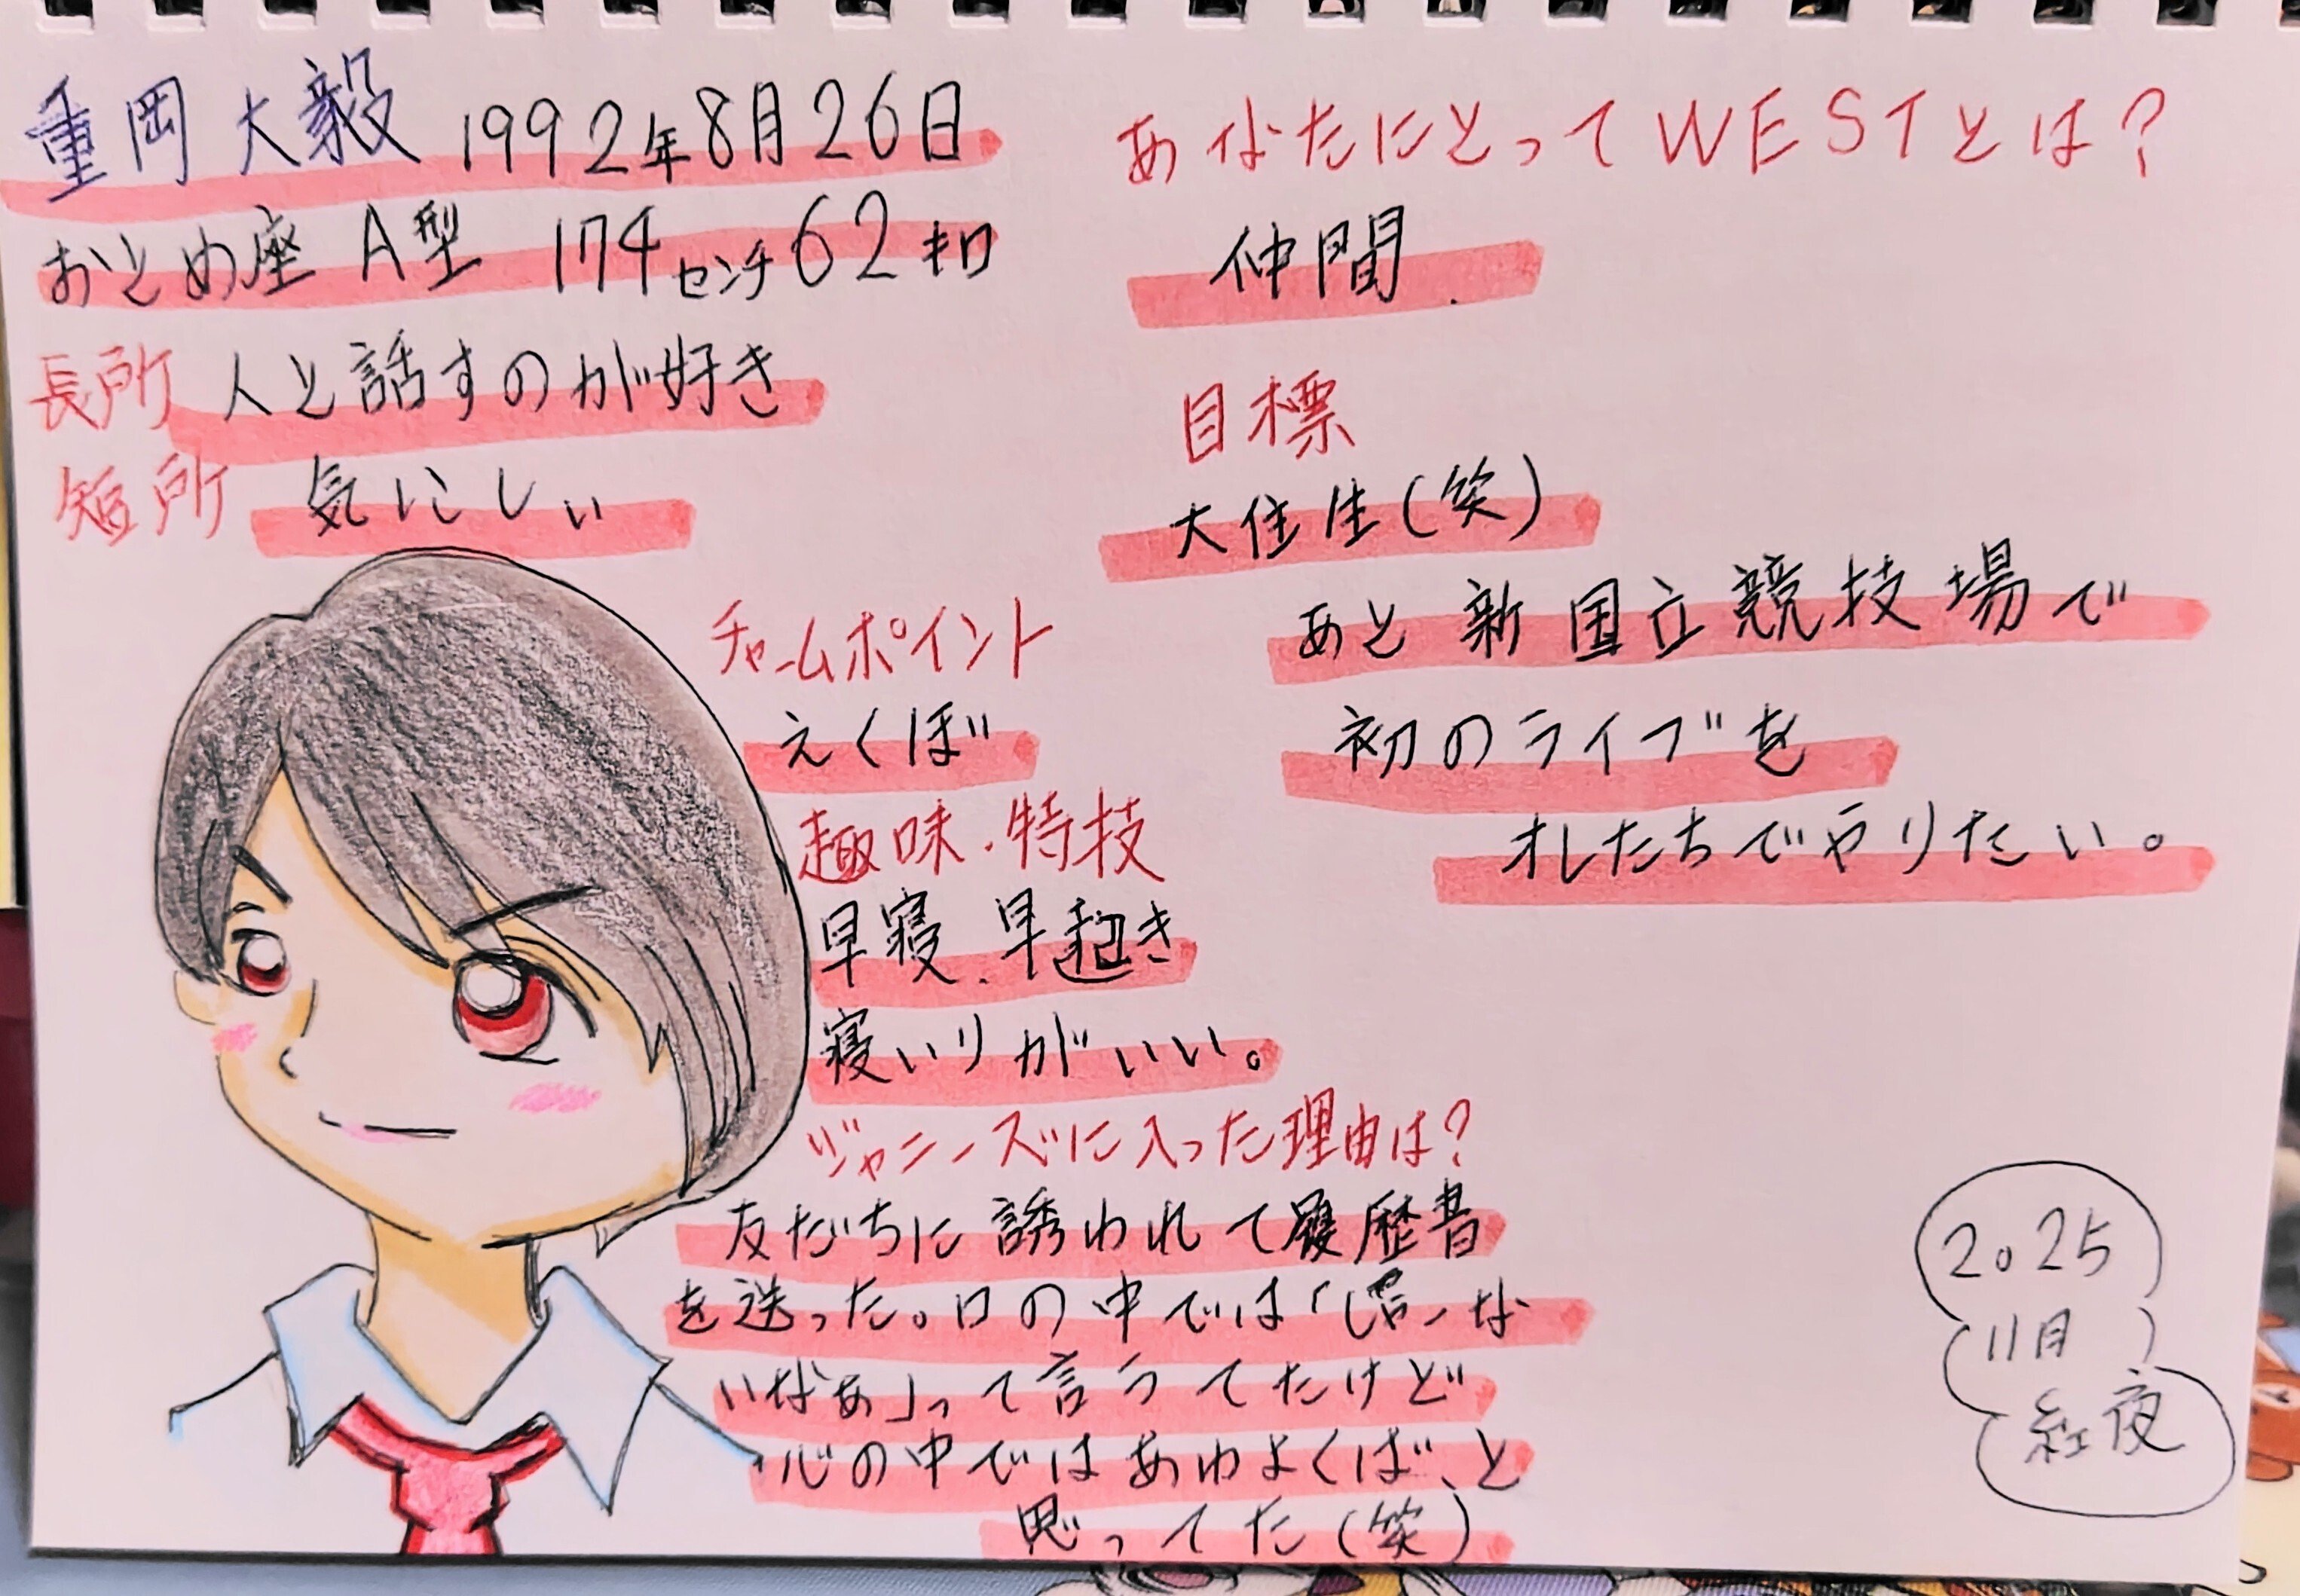 重岡大毅 1992年8月26日
おとめ座 A型 174センチ62キロ
長所 人と話すのが好き
短所 気にしい
チャームポイント
えくぼ
趣味・特技
早寝、早起き
寝いりがいい。
ジャニーズに入った理由は?
友だちに誘われて履歴書
を送った。口の中では「しゃーな
いなぁ」って言うてたけど
心の中ではあわよくば、と
思ってた(笑)
あなたにとってWESTとは?
仲間
目標
大住生(笑)
あと新国立競技場で
初のライブを
オレたちでやりたい。
2025
11月
紅夜